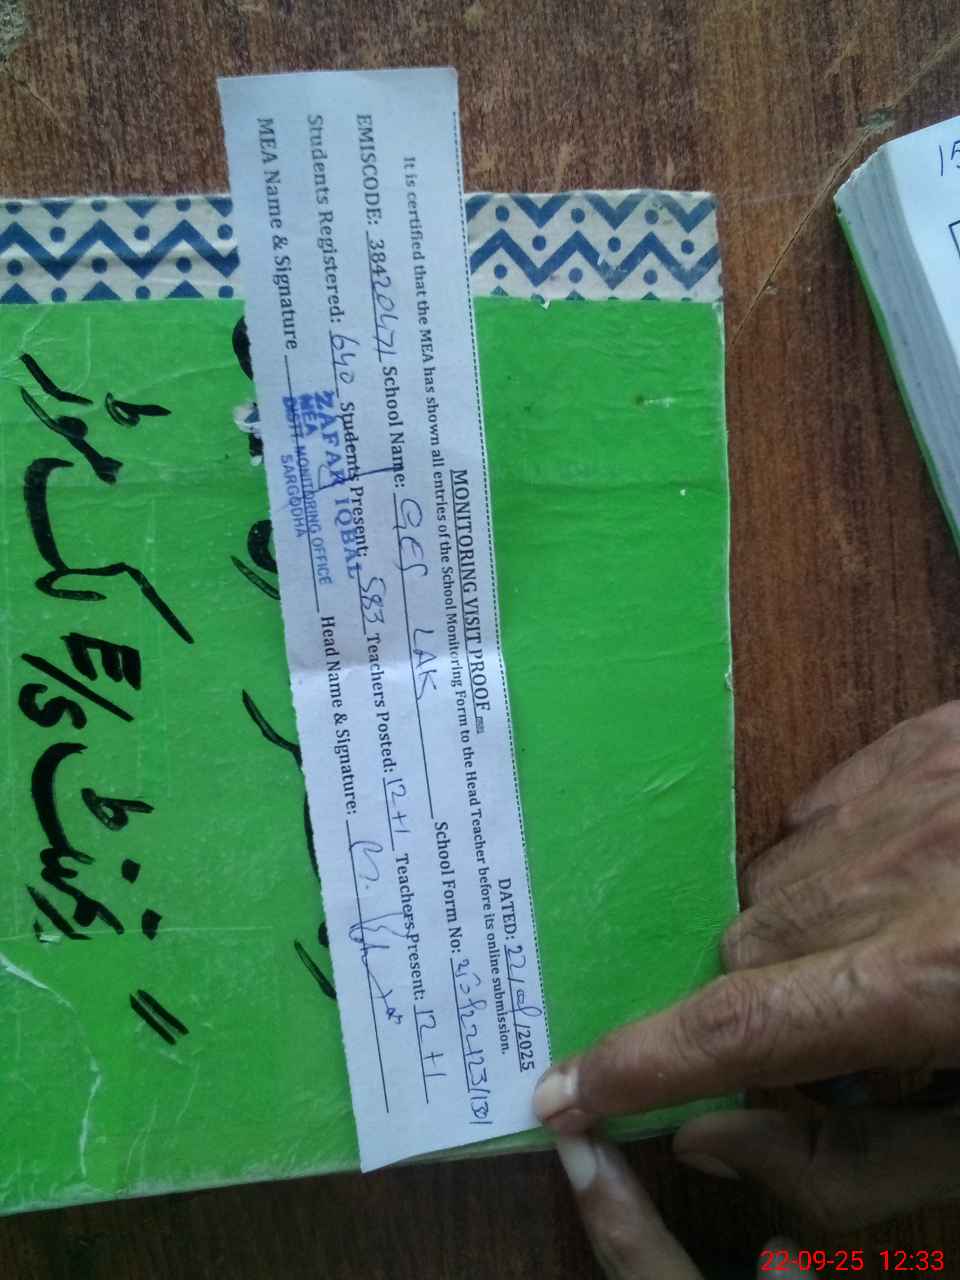 MONITORING VISIT PROOF
DATED: 22/09/2025
It is certified that the MEA has shown all entries of the School Monitoring Form to the Head Teacher before its online submission.
EMISCODE: 38420471 School Name: GES LAK School Form No:
Students Registered: 640 Students Present: 583 Teachers Posted: 12+1 Teachers Present: 12+1
MEA Name & Signature Head Name & Signature:
ZAFAR IQBAL
MEA
DISTT MONITORING OFFICE
SARGODHA
E/S
22-09-25 12:33